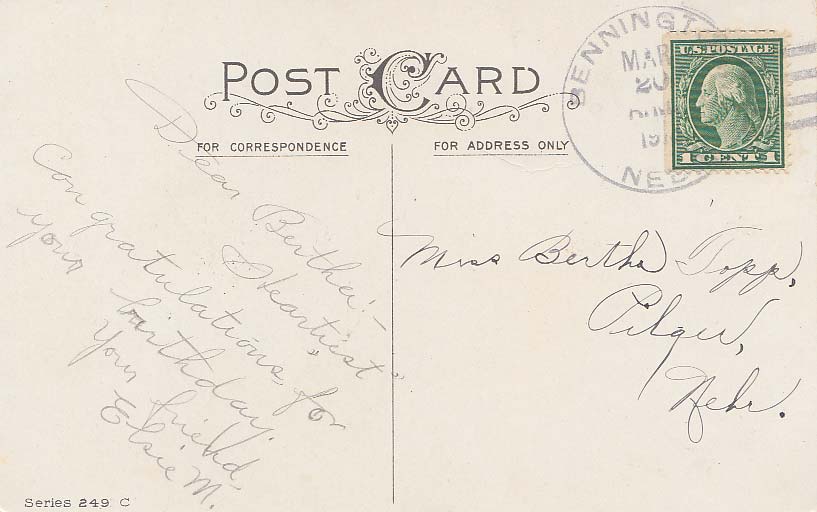 POST CARD
FOR CORRESPONDENCE
FOR ADDRESS ONLY
BENNINGT
MAR
20
191
NEB
U.S. POSTAGE
1 CENT 1
Dear Bertha:-
Heartiest
Congratulations for
your birthday.
Your friend,
Elsie M.
Miss Bertha Topp,
Pilger,
Nebr.
Series 249 C